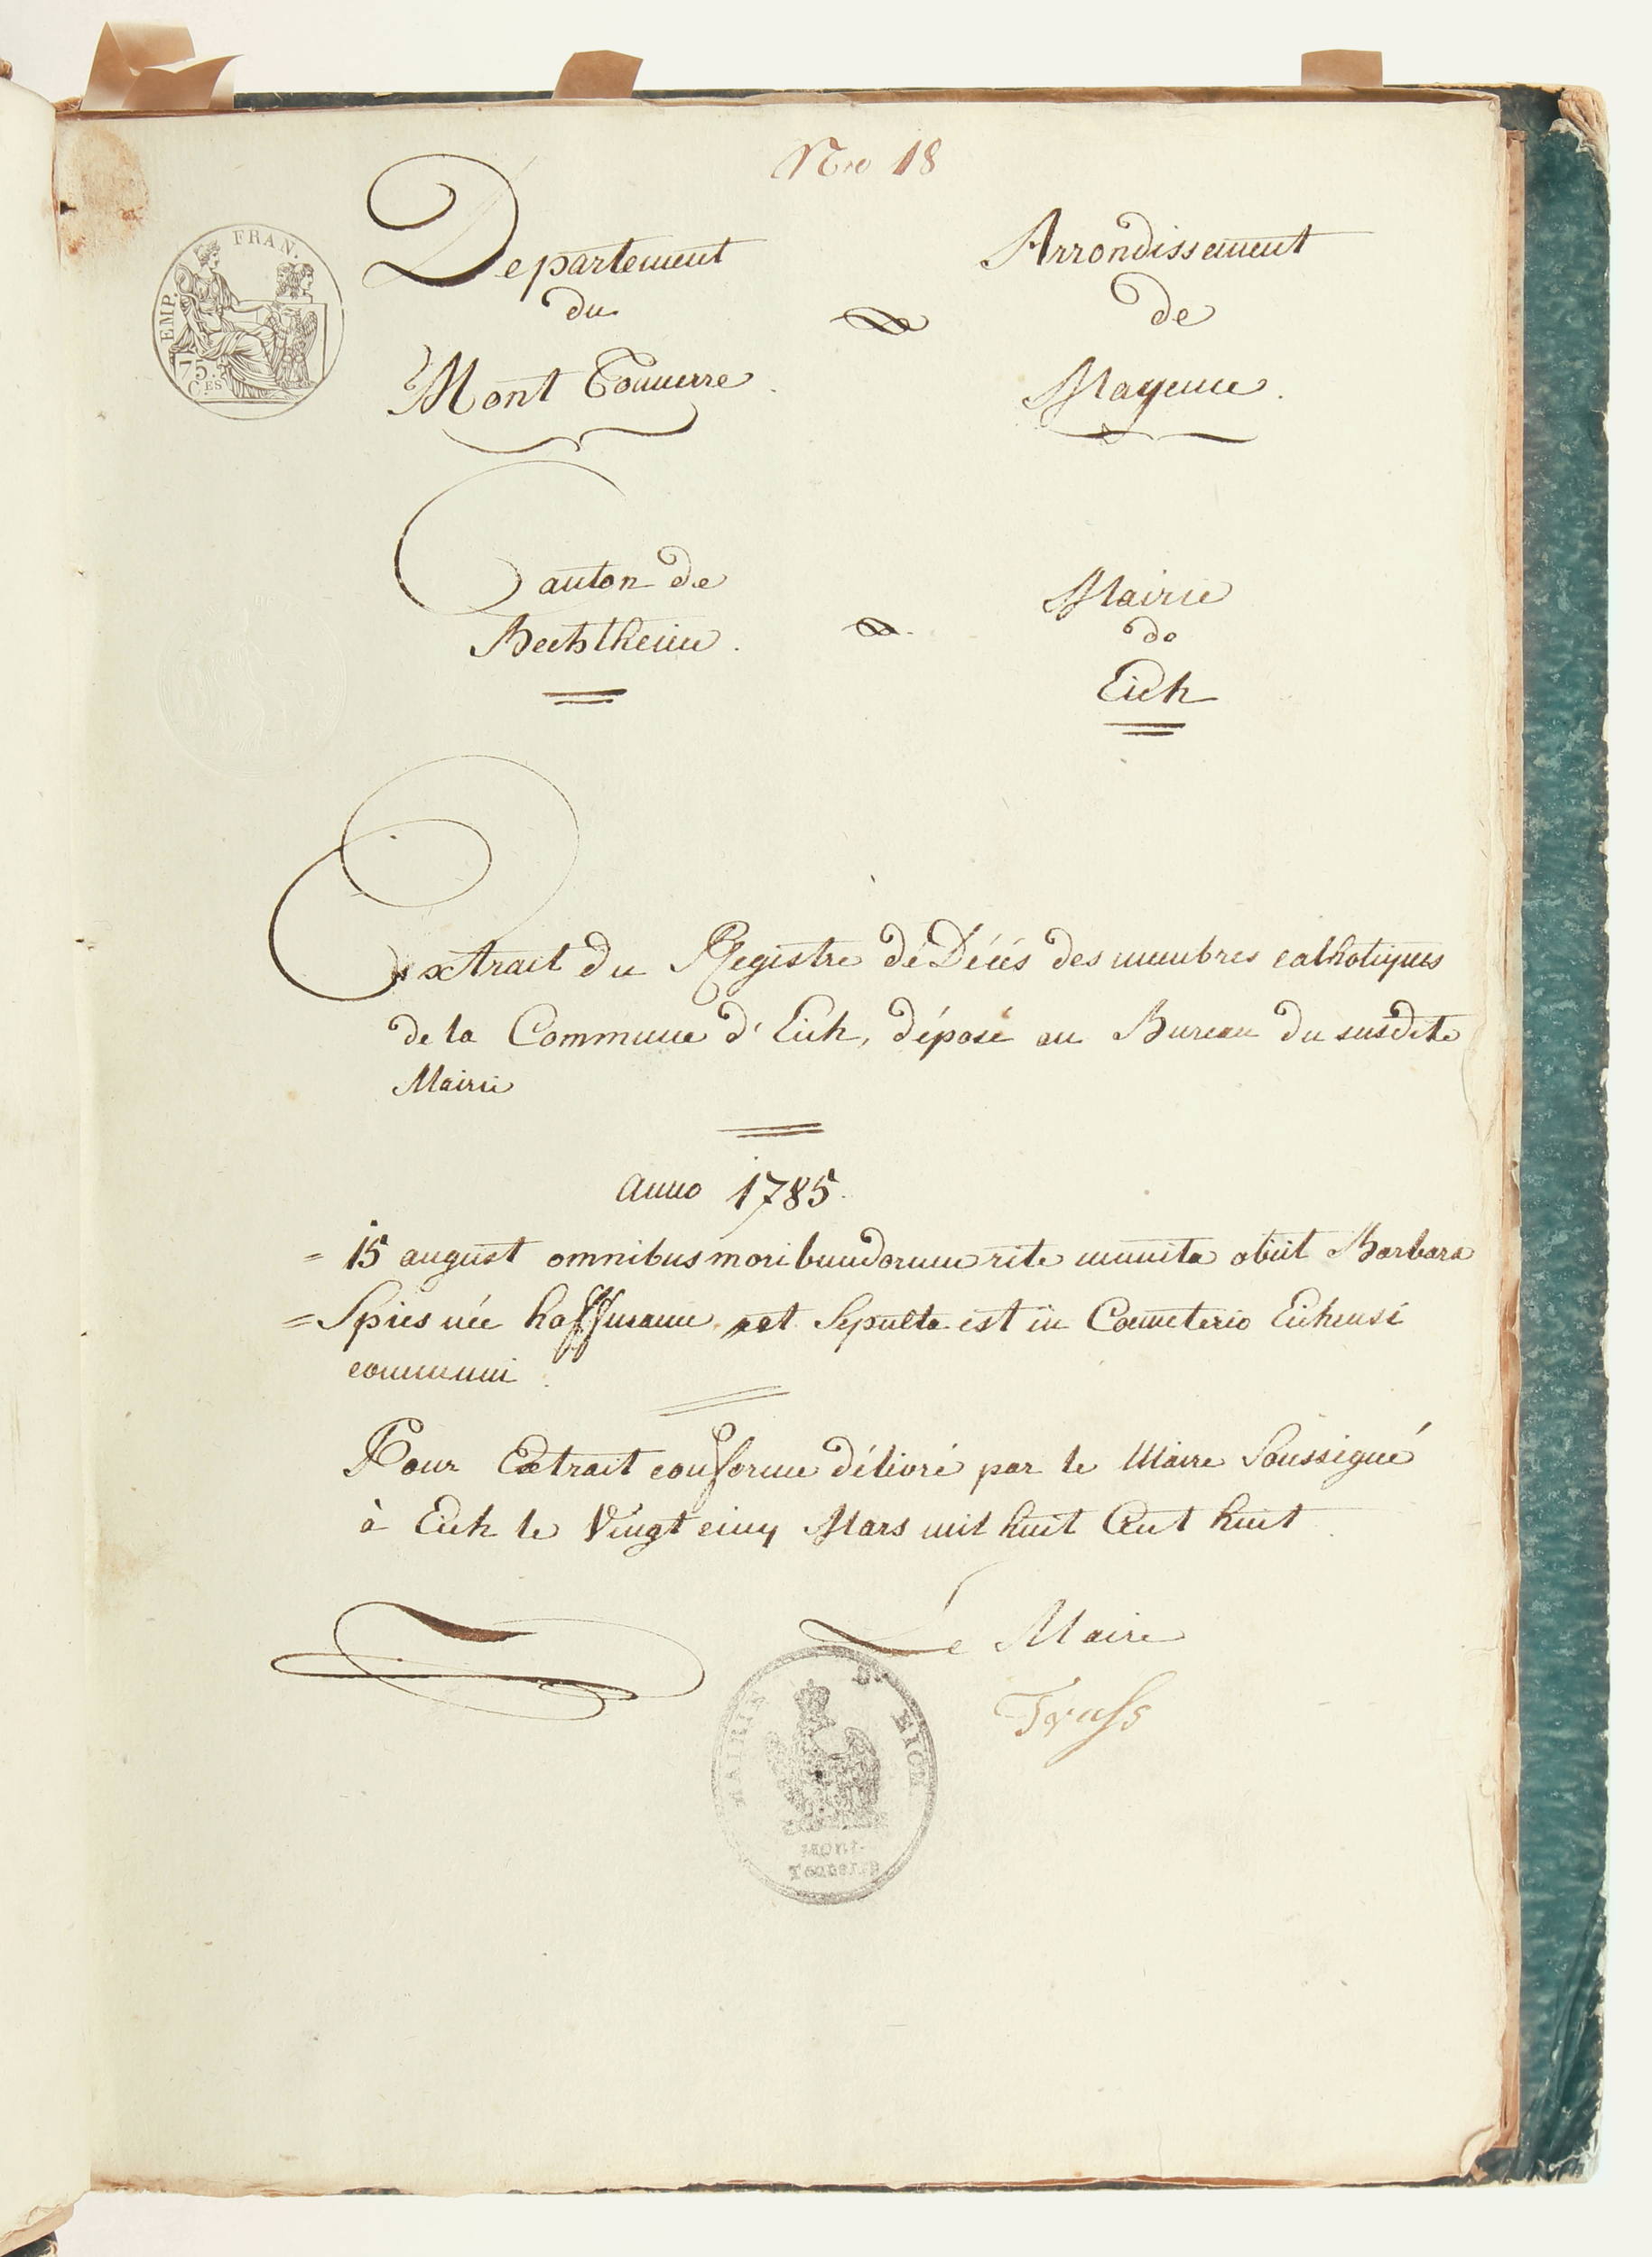 Nro 18
EMP. FRAN.
75.
C.ES
Departement
du
Mont Tonnerre.
Arrondissement
de
Mayence.
Canton de
Bechtheim.
Mairie
de
Eich
Extrait du Registre de Décés des membres catholiques
de la Commune d'Eich, déposé au Bureau du susdite
Mairie
Anno 1785.
= 15 august omnibus moribundorum rite munita obiit Barbara
= Spies née hoffmann et Sepulta est in Coemeterio Eichensi
communi.
Pour Extrait conforme délivré par le Maire Soussigné
à Eich le Vingt cinq Mars mil huit Cent huit
Le Maire
MAIRIE D' EICH
Mont-
Tonnerre